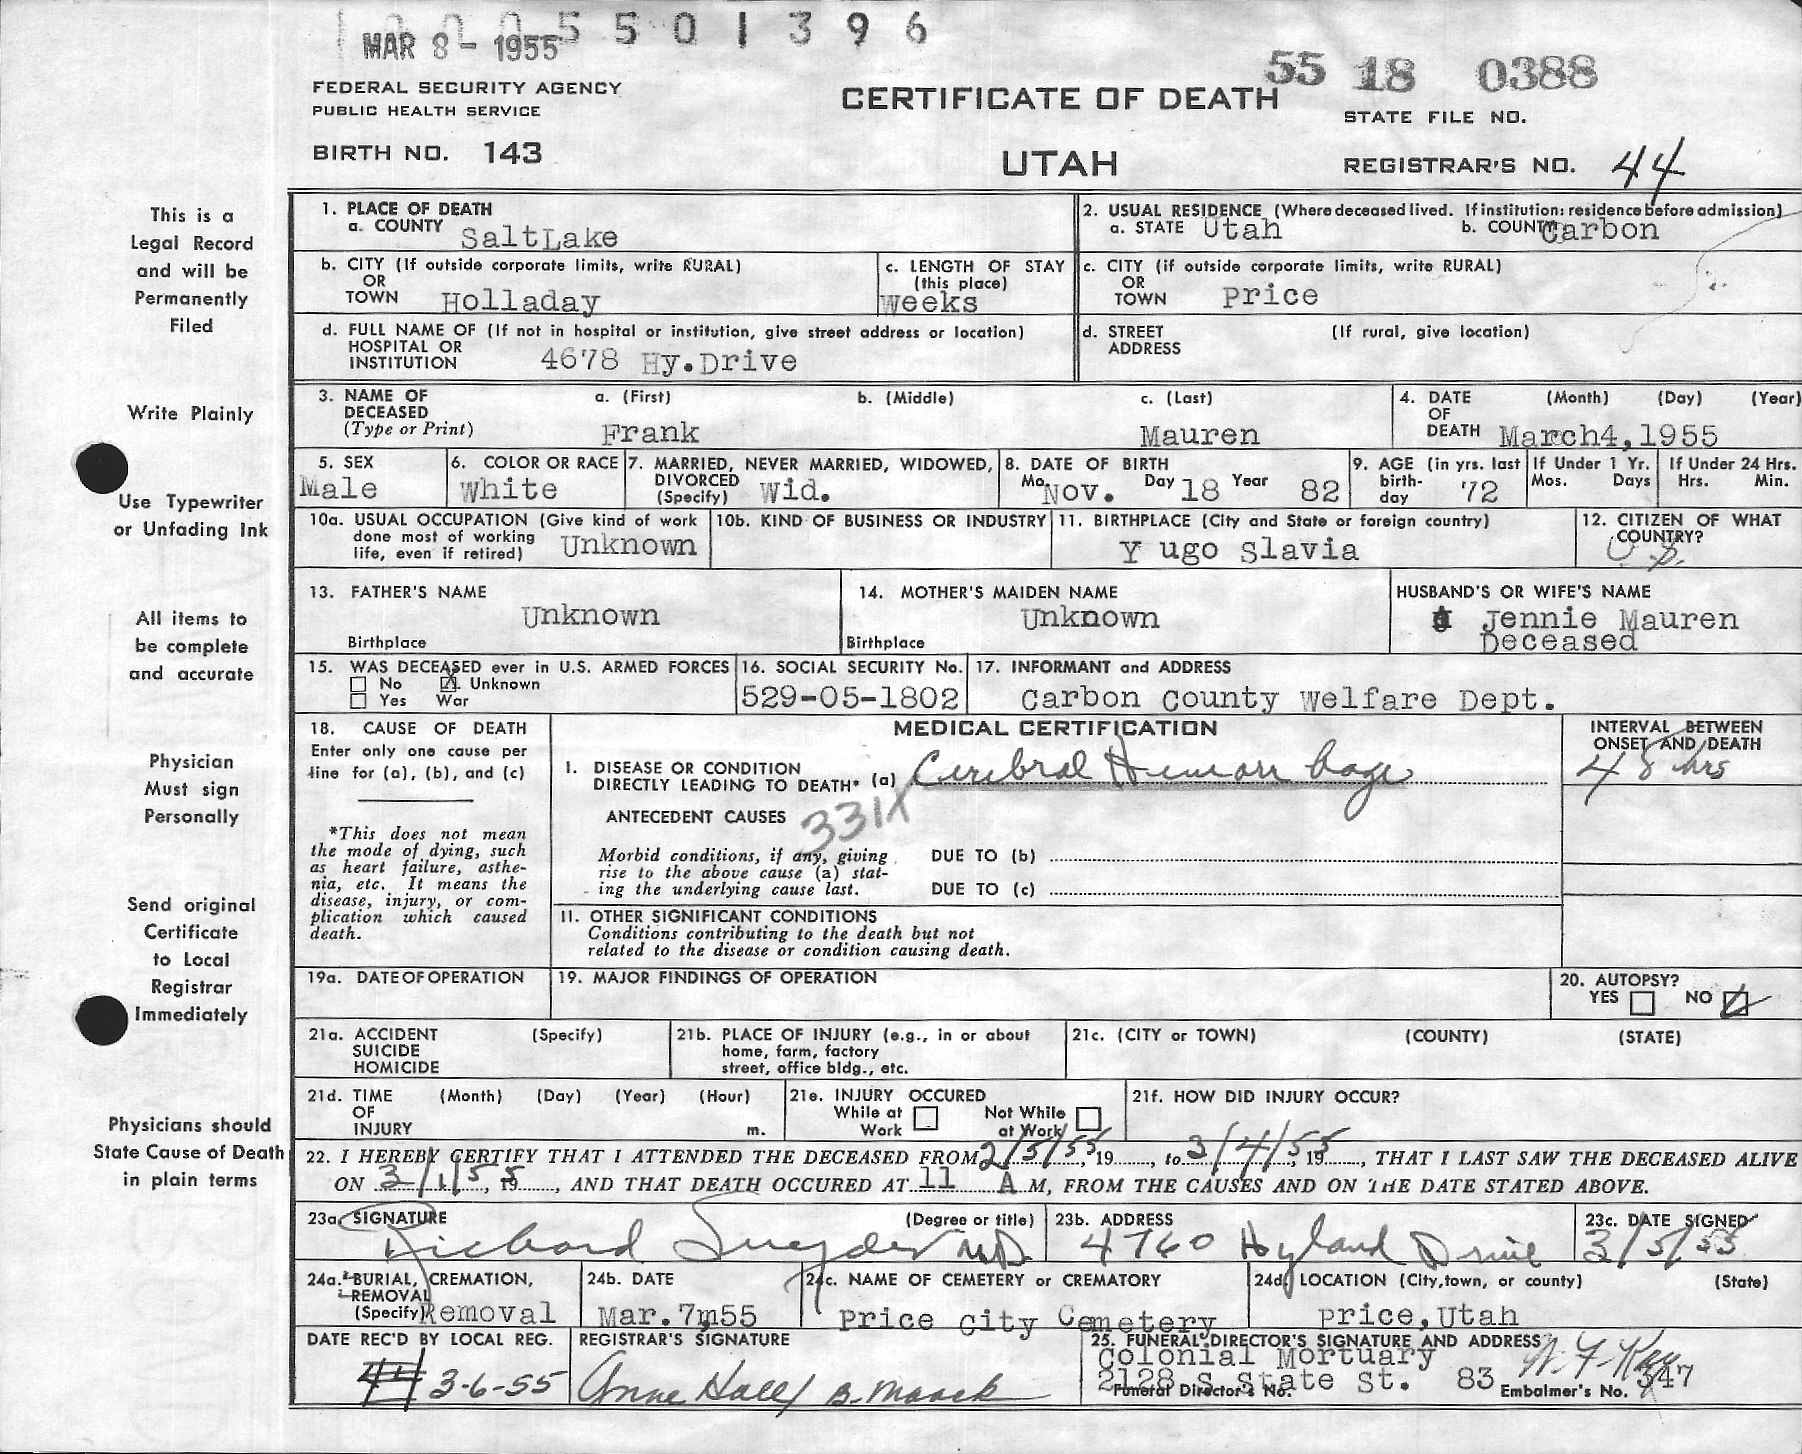 1005501396
MAR 8 - 1955
55 18 0388
FEDERAL SECURITY AGENCY
PUBLIC HEALTH SERVICE
CERTIFICATE OF DEATH
STATE FILE NO.
BIRTH NO. 143
UTAH
REGISTRAR'S NO. 44
This is a
Legal Record
and will be
Permanently
Filed
Write Plainly
Use Typewriter
or Unfading Ink
All items to
be complete
and accurate
Physician
Must sign
Personally
Send original
Certificate
to Local
Registrar
Immediately
Physicians should
State Cause of Death
in plain terms
1. PLACE OF DEATH
a. COUNTY SaltLake
2. USUAL RESIDENCE (Where deceased lived. If institution: residence before admission)
a. STATE Utah b. COUNTY Carbon
b. CITY (If outside corporate limits, write RURAL)
OR
TOWN Holladay
c. LENGTH OF STAY
(this place)
Weeks
c. CITY (if outside corporate limits, write RURAL)
OR
TOWN Price
d. FULL NAME OF (If not in hospital or institution, give street address or location)
HOSPITAL OR
INSTITUTION 4678 Hy.Drive
d. STREET (If rural, give location)
ADDRESS
3. NAME OF a. (First) b. (Middle) c. (Last)
DECEASED
(Type or Print) Frank Mauren
4. DATE (Month) (Day) (Year)
OF
DEATH March4,1955
5. SEX
Male
6. COLOR OR RACE
White
7. MARRIED, NEVER MARRIED, WIDOWED,
DIVORCED
(Specify) Wid.
8. DATE OF BIRTH
Mo. Nov. Day 18 Year 82
9. AGE (in yrs. last
birth-
day 72
If Under 1 Yr.
Mos. Days
If Under 24 Hrs.
Hrs. Min.
10a. USUAL OCCUPATION (Give kind of work
done most of working
life, even if retired) Unknown
10b. KIND OF BUSINESS OR INDUSTRY
11. BIRTHPLACE (City and State or foreign country)
Y ugo Slavia
12. CITIZEN OF WHAT
COUNTRY?
U.S.
13. FATHER'S NAME
Unknown
Birthplace
14. MOTHER'S MAIDEN NAME
Unknown
Birthplace
HUSBAND'S OR WIFE'S NAME
Jennie Mauren
Deceased
15. WAS DECEASED ever in U.S. ARMED FORCES
No X Unknown
Yes War
16. SOCIAL SECURITY No.
529-05-1802
17. INFORMANT and ADDRESS
Carbon County Welfare Dept.
18. CAUSE OF DEATH
Enter only one cause per
line for (a), (b), and (c)
*This does not mean
the mode of dying, such
as heart failure, asthe-
nia, etc. It means the
disease, injury, or com-
plication which caused
death.
MEDICAL CERTIFICATION
I. DISEASE OR CONDITION
DIRECTLY LEADING TO DEATH* (a) Cerebral Hemorrhage
ANTECEDENT CAUSES 331X
Morbid conditions, if any, giving
rise to the above cause (a) stat-
ing the underlying cause last.
DUE TO (b)
DUE TO (c)
INTERVAL BETWEEN
ONSET AND DEATH
48 hrs
II. OTHER SIGNIFICANT CONDITIONS
Conditions contributing to the death but not
related to the disease or condition causing death.
19a. DATE OF OPERATION
19. MAJOR FINDINGS OF OPERATION
20. AUTOPSY?
YES NO
21a. ACCIDENT (Specify)
SUICIDE
HOMICIDE
21b. PLACE OF INJURY (e.g., in or about
home, farm, factory
street, office bldg., etc.
21c. (CITY or TOWN) (COUNTY) (STATE)
21d. TIME (Month) (Day) (Year) (Hour)
OF
INJURY m.
21e. INJURY OCCURED
While at Not While
Work at Work
21f. HOW DID INJURY OCCUR?
22. I HEREBY CERTIFY THAT I ATTENDED THE DECEASED FROM 2/5/55, 19, to 3/4/55, 19, THAT I LAST SAW THE DECEASED ALIVE
ON 3/1/55, 19, AND THAT DEATH OCCURED AT 11 A M, FROM THE CAUSES AND ON THE DATE STATED ABOVE.
23a. SIGNATURE (Degree or title)
Richard Snyder MD
23b. ADDRESS
4760 Hyland Drive
23c. DATE SIGNED
3/5/55
24a. BURIAL, CREMATION,
REMOVAL
(Specify) Removal
24b. DATE
Mar.7m55
24c. NAME OF CEMETERY or CREMATORY
Price City Cemetery
24d. LOCATION (City, town, or county) (State)
Price,Utah
DATE REC'D BY LOCAL REG.
3-6-55
REGISTRAR'S SIGNATURE
Anne Hall B. Maack
25. FUNERAL DIRECTOR'S SIGNATURE AND ADDRESS
Colonial Mortuary
2128 S State St. 83
Funeral Director's No. Embalmer's No. 347